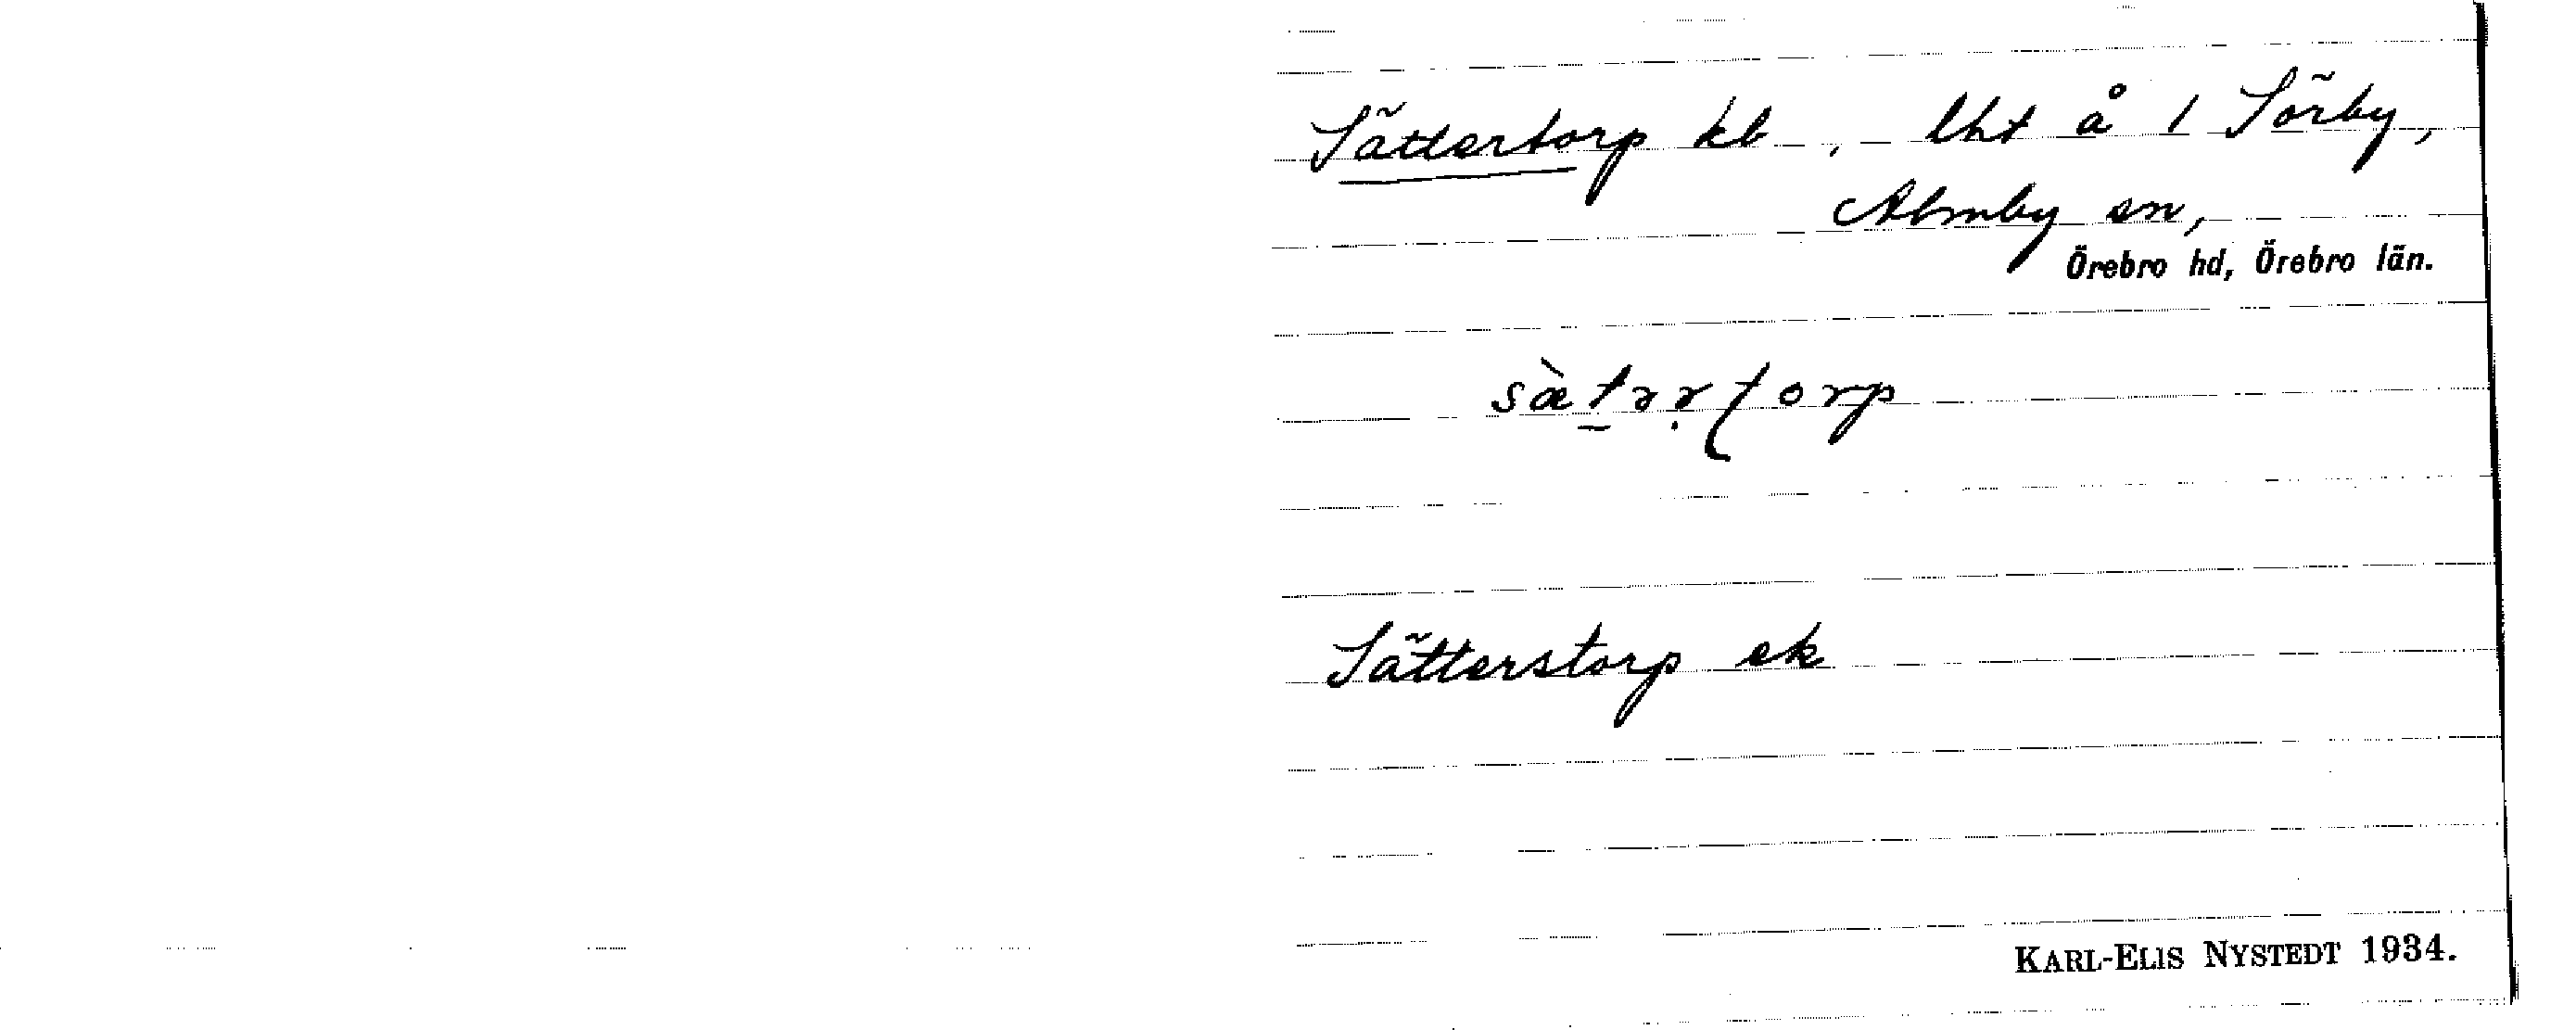 Sättertorp kb, lht å 1 Sörby,
Almby sn,
Örebro hd, Örebro län.
Sätterstorp ek
KARL-ELIS NYSTEDT 1934.